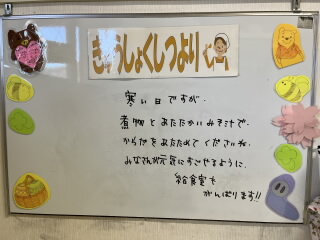 きゅうしょくしつより
寒い日ですが、
煮物とあたたかいみそ汁で、
からだをあたためてくださいね。
みなさんが元気にすごせるように、
給食室も
がんばります!!